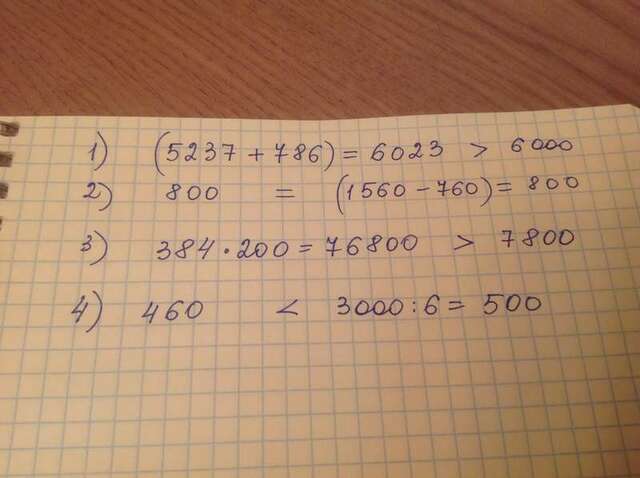 1) (5237 + 786) = 6023 > 6000
2) 800 = (1560 - 760) = 800
3) 384 · 200 = 76800 > 7800
4) 460 < 3000 : 6 = 500